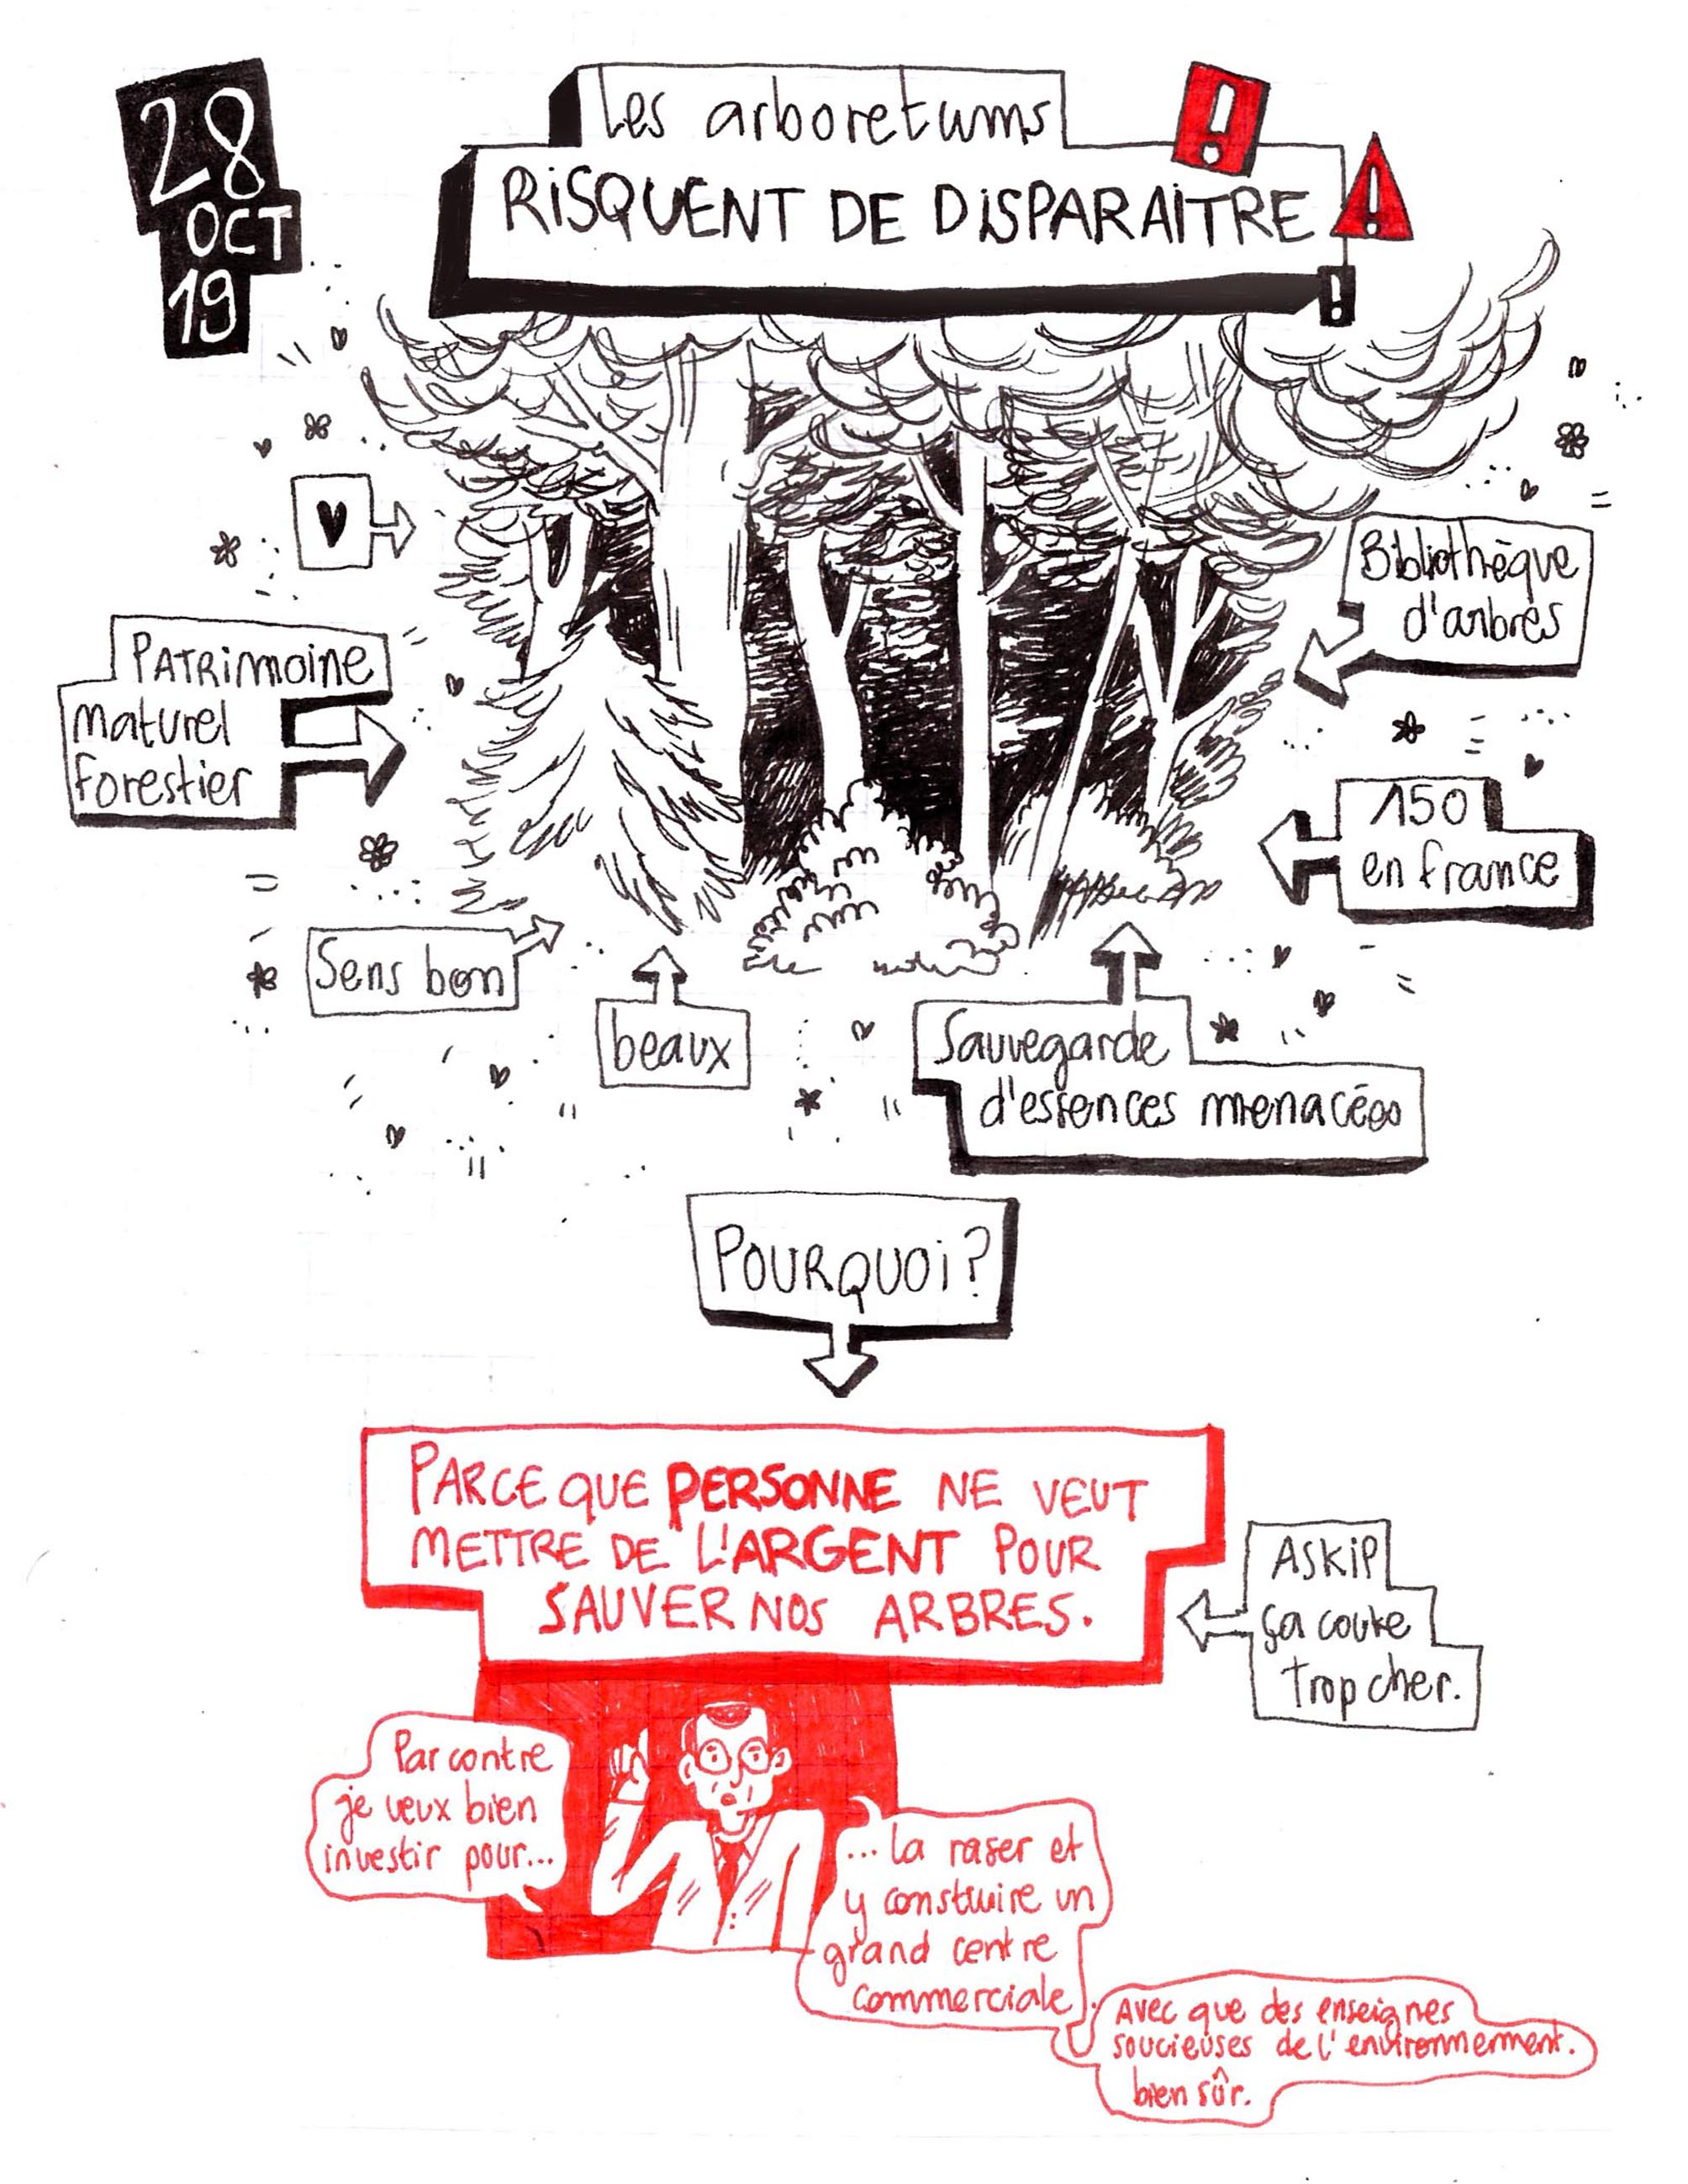 28
OCT
19
les arboretums
RiSQUENT DE DiSPARAiTRE
!
!
!
Bibliothèque
d'arbres
PATRimoine
naturel
forestier
150
en france
Sens bon
beaux
Sauvegarde
d'essences menacées
POURQUOi?
PARCE QUE PERSONNE NE VEUT
METTRE DE L'ARGENT POUR
SAUVER NOS ARBRES.
ASKiP
ça coute
trop cher.
Par contre
je veux bien
investir pour...
... la raser et
y construire un
grand centre
commerciale.
Avec que des enseignes
soucieuses de l'environnement.
bien sûr.